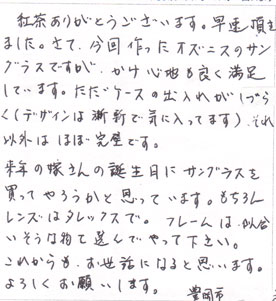 紅茶ありがとうございます。早速頂き
ました。さて、今回作ったオズニスのサン
グラスですが、かけ心地も良く満足
しています。ただケースの出入れがしづら
く(デザインは漸新で気に入ってます)それ
以外はほぼ完璧です。
来年の嫁さんの誕生日にサングラスを
買ってやろうかと思っています。もちろん
レンズはタレックスで。フレームは似合
いそうな物を選んでやって下さい。
これからも、お世話になると思います。
よろしくお願いします。
豊岡市